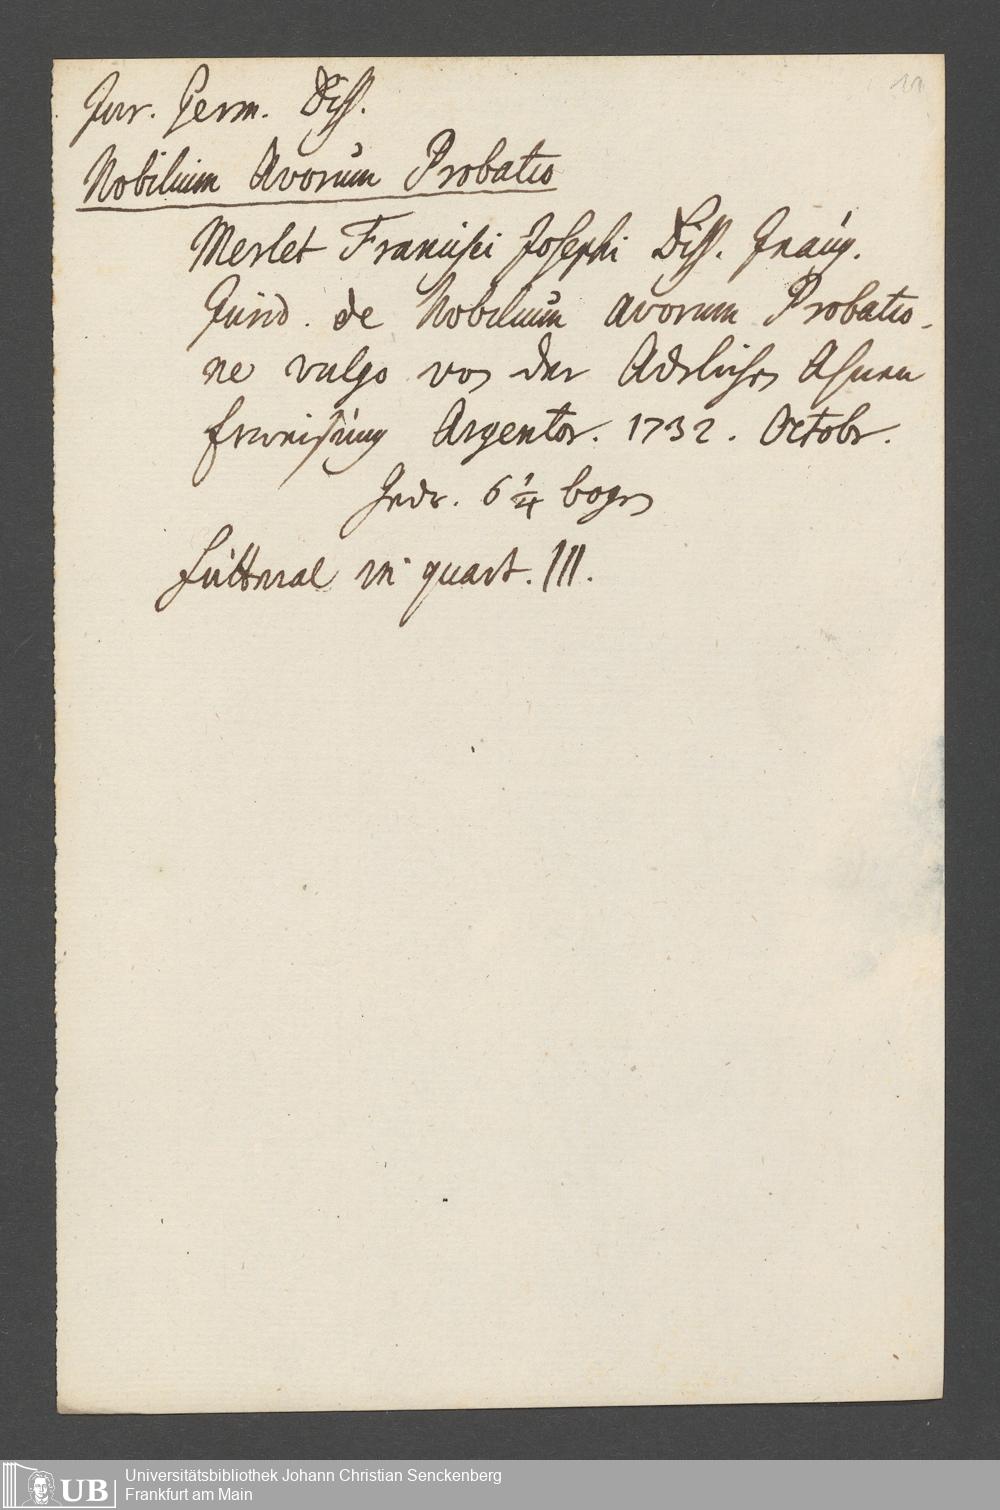 11
Jur. Germ. Diss.
Nobilium Avorum Probatio
Merlet Francisci Josephi Diss. Inaug.
Jurid. de Nobilium avorum Probatio-
ne vulgo von der Adelichen Ahnen
Erweisung Argentor. 1732. Octobr.
6 1/4 bogen
Futteral in quart. III.
Universitätsbibliothek Johann Christian Senckenberg
UB Frankfurt am Main